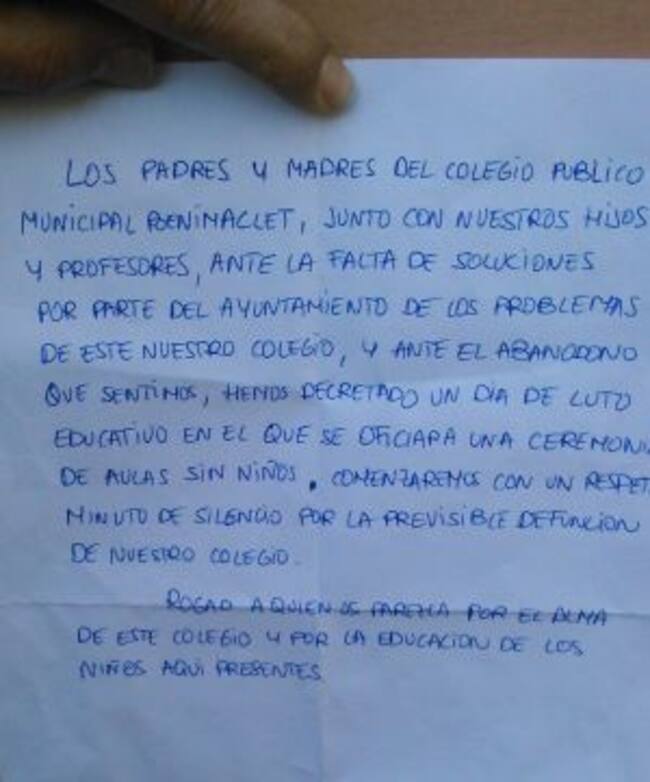 LOS PADRES Y MADRES DEL COLEGIO PUBLICO
MUNICIPAL BENIMACLET, JUNTO CON NUESTROS HIJOS
Y PROFESORES, ANTE LA FALTA DE SOLUCIONES
POR PARTE DEL AYUNTAMIENTO DE LOS PROBLEMAS
DE ESTE NUESTRO COLEGIO, Y ANTE EL ABANDONO
QUE SENTIMOS, HEMOS DECRETADO UN DIA DE LUTO
EDUCATIVO EN EL QUE SE OFICIARA UNA CEREMONIA
DE AULAS SIN NIÑOS. COMENZAREMOS CON UN RESPET
MINUTO DE SILENCIO POR LA PREVISIBLE DEFUNCION
DE NUESTRO COLEGIO.
ROGAD A QUIEN OS PAREZCA POR EL ALMA
DE ESTE COLEGIO Y POR LA EDUCACION DE LOS
NIÑOS AQUI PRESENTES